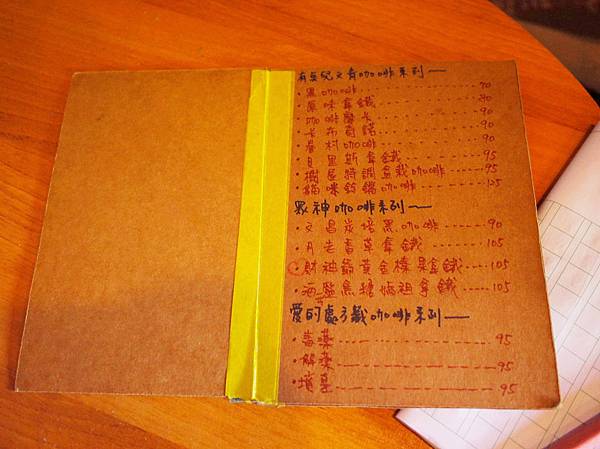 有点兒文青咖啡系列—
·黑咖啡--------70
·原味拿鐵--------90
·咖啡摩卡--------90
·卡布奇諾--------90
·眷村咖啡--------90
·貝里斯拿鐵--------95
·樹屋特調盆栽咖啡------95
·貓咪鈴鐺咖啡------125
眾神咖啡系列—
·文昌炭培黑咖啡------90
·月老香草拿鐵------105
·財神爺黃金榛果拿鐵-----105
·海鹽焦糖媽祖拿鐵-----105
愛的處方籤咖啡系列—
·毒藥--------95
·解藥--------95
·95